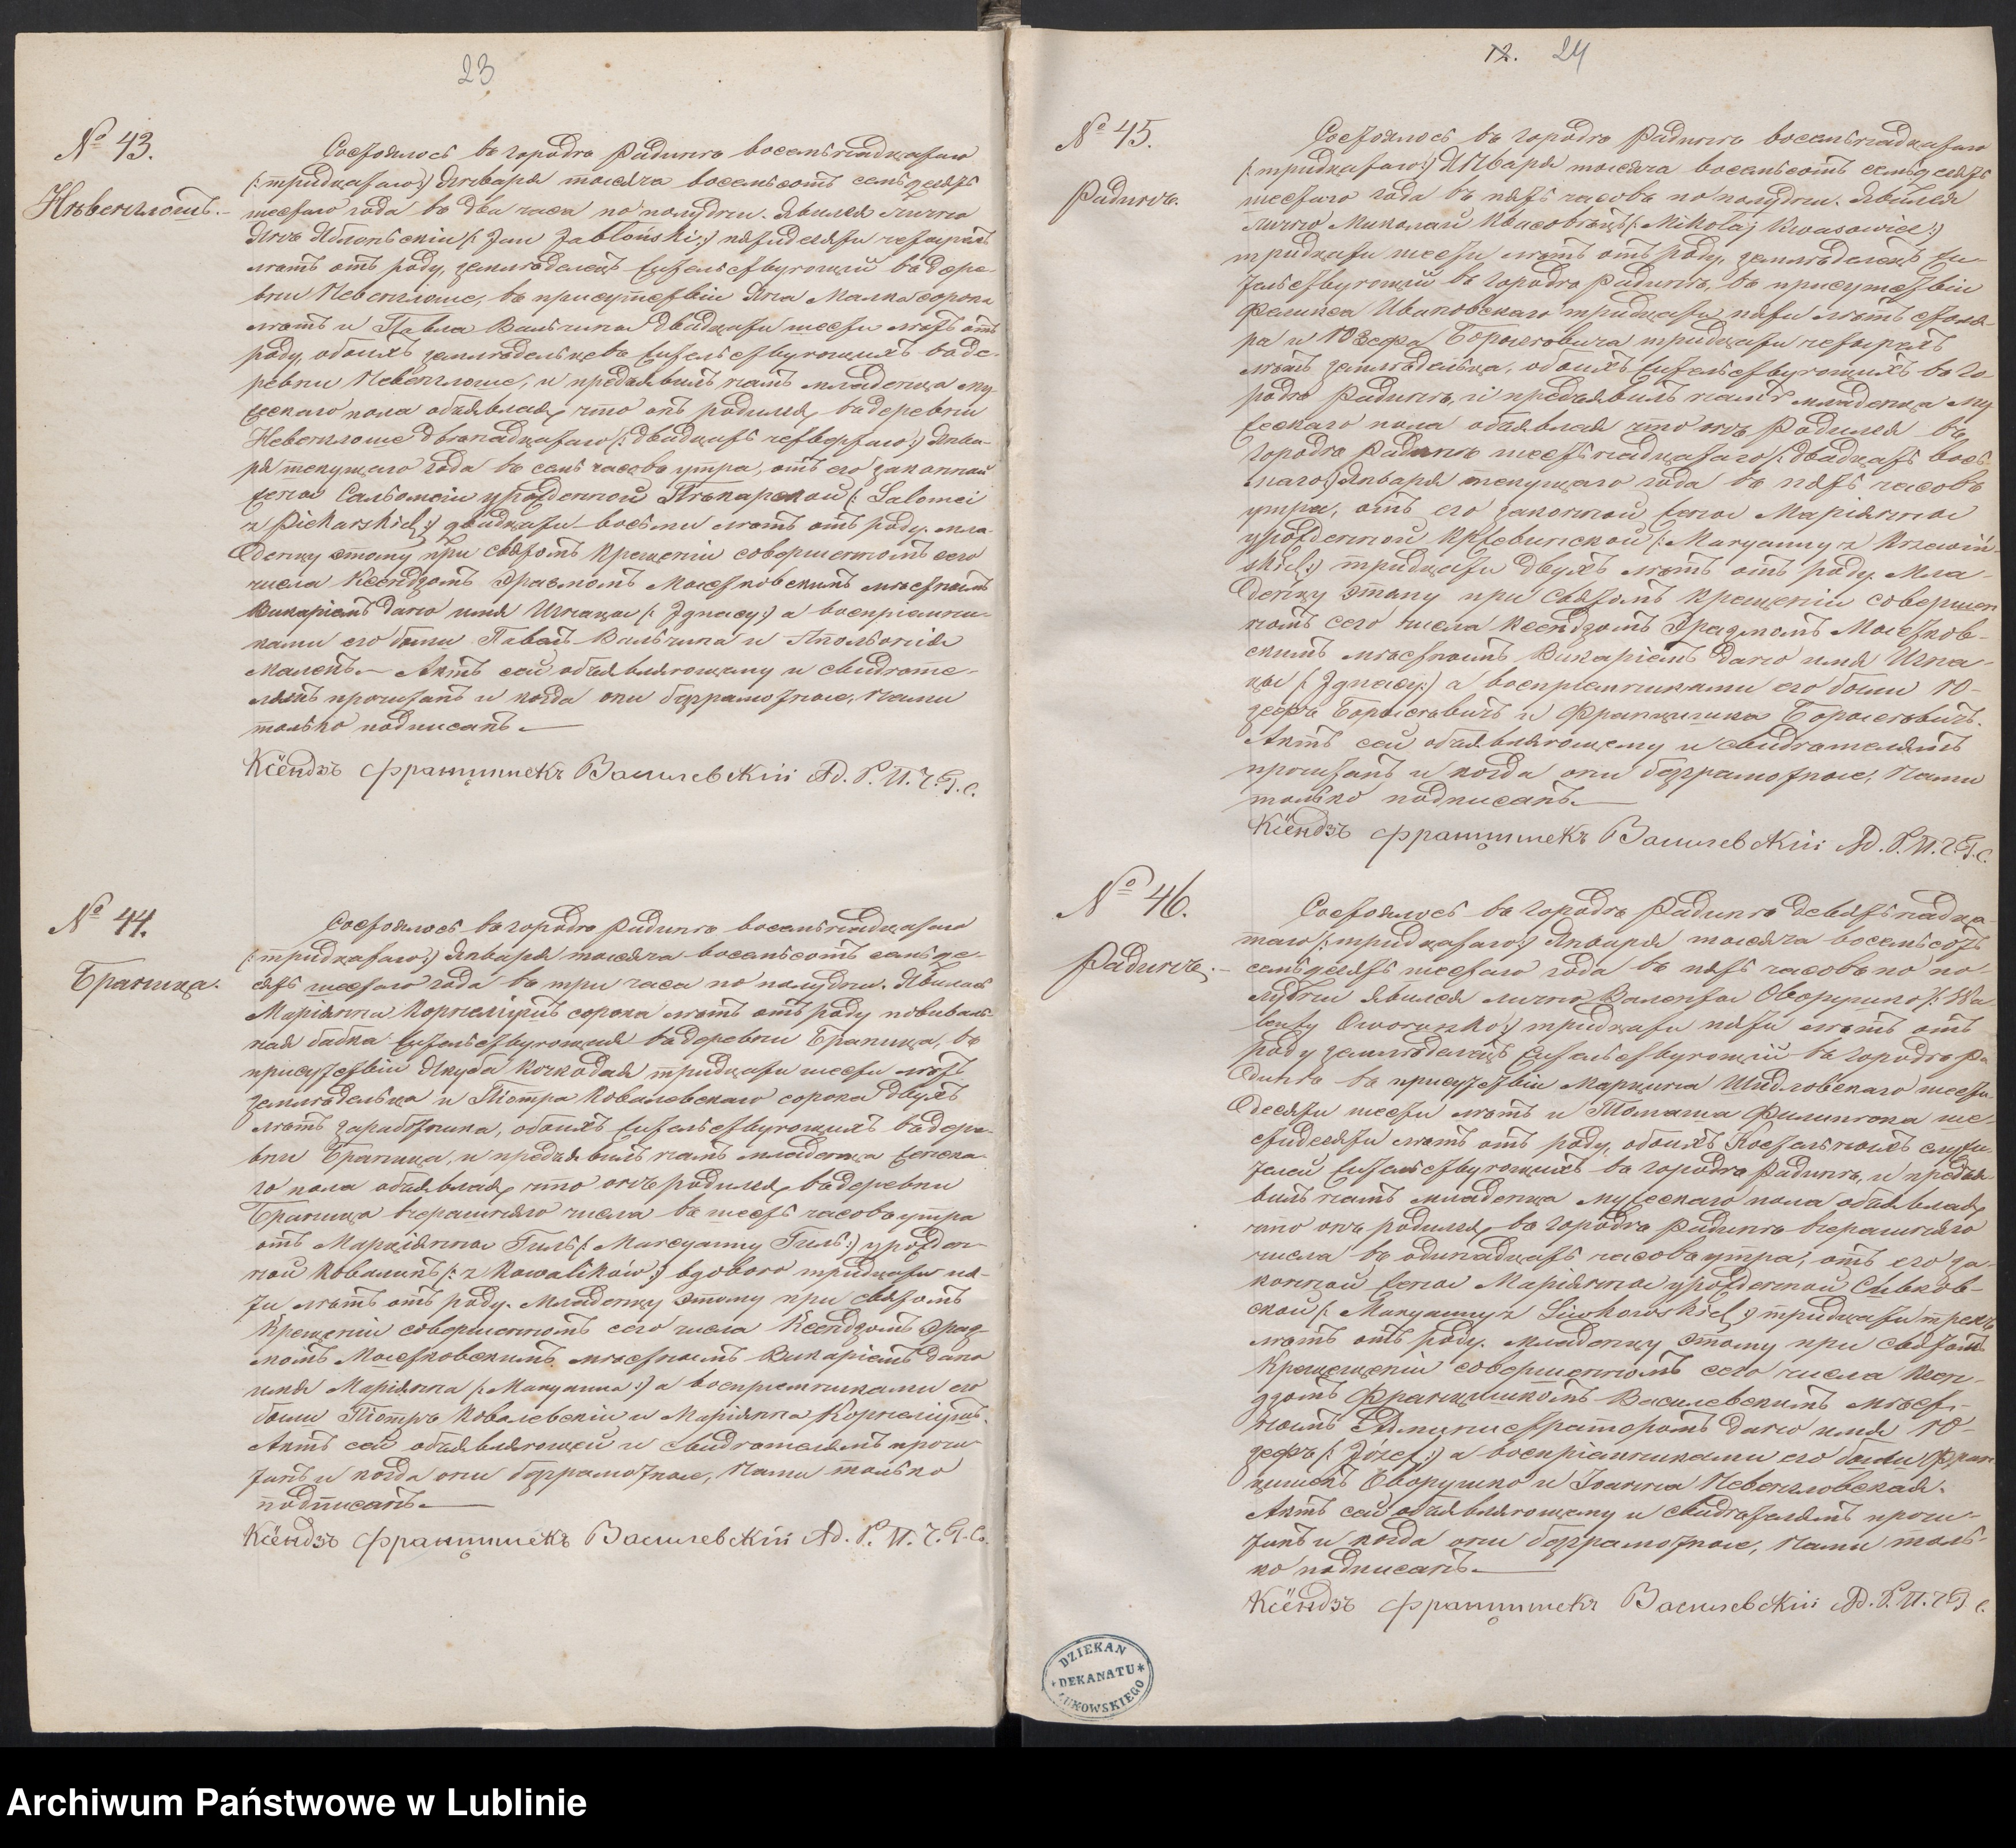 23
№ 43.
Невенглошъ.
Состоялось въ городѣ Радинѣ восемнадцатаго
(: тридцатаго :) Января тысяча восемьсотъ семьдесятъ
шестаго года въ два часа по полудни. Явился лично
Янъ Яблонскій (: Jan Jabłoński :) пятидесяти четырехъ
лѣтъ отъ роду, земледѣлецъ жительствующій въ дере-
вни Невенглоше, въ присутствіи Яна Малка сорока
лѣтъ и Павла Вальчика двадцати шести лѣтъ отъ
роду, обоихъ земледѣльцевъ жительствующихъ въ де-
ревни Невенглоше, и предъявилъ намъ младенца му-
жескаго пола объявляя, что онъ родился въ деревни
Невенглоше двѣнадцатаго (: двадцать четвертаго :) Янва-
ря текущаго года въ семь часовъ утра, отъ его законной
жены Сальомеіи урожденной Пѣкарской (: Salomei
z Piekarskich :) двадцати восьми лѣтъ отъ роду. Мла-
денцу этому при святомъ крещеніи совершенномъ сего
числа Ксендзомъ Эразмомъ Мостковскимъ мѣстнымъ
Викаріемъ дано имя Игнацы (: Ignacy :) а воспріемни-
ками его были Павелъ Вальчикъ и Апольонія
Малекъ. Актъ сей объявляющему и свидѣте-
лямъ прочитанъ и когда они безграмотные, Нами
только подписанъ.
Ксёндзъ Францишекъ Василевскій Ад. Р. П. Ч. Г. С.
№ 44.
Браница.
Состоялось въ городѣ Радинѣ восемнадцатаго
(: тридцатаго :) Января тысяча восемьсотъ семьде-
сятъ шестаго года въ три часа по полудни. Явилась
Маріянна Корнелюкъ сорока лѣтъ отъ роду повиваль-
ная бабка жительствующая въ деревни Браница, въ
присутствіи Якуба Кочкодая тридцати шести лѣтъ
земледѣльца и Піотра Ковалевскаго сорока двухъ
лѣтъ заработника, обоихъ жительствующихъ въ дере-
вни Браница, и предъявилъ намъ младенца женска-
го пола объявляя, что онъ родился въ деревни
Браница вчерашняго числа въ шесть часовъ утра
отъ Марціянны Гиль (: Marcyanny Гиль :) урожден-
ной Коваликъ (: z Kowalików :) вдовою тридцати пя-
ти лѣтъ отъ роду. Младенцу этому при святомъ
крещеніи совершенномъ сего числа Ксендзомъ Эраз-
момъ Мостковскимъ мѣстнымъ Викаріемъ дано
имя Маріянна (: Maryanna :) а воспріемниками его
были Піотръ Ковалевскій и Маріянна Корнелюкъ.
Актъ сей объявляющей и свидѣтелямъ прочи-
танъ и когда они безграмотные, Нами только
подписанъ.
Ксёндзъ Францишекъ Василевскій Ад. Р. П. Ч. Г. С.
12. 24
№ 45.
Радинъ.
Состоялось въ городѣ Радинѣ восемнадцатаго
(: тридцатаго :) Января тысяча восемьсотъ семьдесятъ
шестаго года въ пять часовъ по полудни. Явился
лично Миколай Квасовецъ (: Mikołaj Kwasowiec :)
тридцати шести лѣтъ отъ роду, земледѣлецъ жи-
тельствующій въ городѣ Радинѣ, въ присутствіи
Феликса Ивановскаго тридцати пяти лѣтъ столя-
ра и Юзефа тридцати четырехъ
лѣтъ земледѣльца, обоихъ жительствующихъ въ го-
родѣ Радинѣ, и предъявилъ намъ младенца му-
жескаго пола объявляя что онъ родился въ
городѣ Радинѣ шестнадцатаго (: двадцать вось-
маго :) Января текущаго года въ пять часовъ
утра, отъ его законной жены Маріянны
урожденной Кржевинской (: Maryanny z Krzewiń-
skich :) тридцати двухъ лѣтъ отъ роду. Мла-
денцу этому при святомъ крещеніи совершен-
номъ сего числа Ксендзомъ Эразмомъ Мостков-
скимъ мѣстнымъ Викаріемъ дано имя Игна-
цы (: Ignacy :) а воспріемниками его были Ю-
зефъ и Францишка
Актъ сей объявляющему и свидѣтелямъ
прочитанъ и когда они безграмотные, Нами
только подписанъ.
Ксёндзъ Францишекъ Василевскій Ад. Р. П. Ч. Г. С.
№ 46.
Радинъ.
Состоялось въ городѣ Радинѣ девятнадца-
таго (: тридцатаго :) Января тысяча восемьсотъ
семьдесятъ шестаго года въ пять часовъ по по-
лудни Явился лично Валенты Оворушко (: Wa-
lenty Oworuszko :) тридцати пяти лѣтъ отъ
роду земледѣлецъ жительствующій въ городѣ Ра-
динѣ въ присутствіи Марцина Шидловскаго шести-
десяти шести лѣтъ и Томаша Филипюка ше-
стидесяти лѣтъ отъ роду, обоихъ костельныхъ служи-
телей жительствующихъ въ городѣ Радинѣ, и предъя-
вилъ намъ младенца мужескаго пола объявляя,
что онъ родился въ городѣ Радинѣ вчерашняго
числа въ одинадцать часовъ утра, отъ его за-
конной жены Маріянны урожденной Сивков-
ской (: Maryanny z :) тридцати трехъ
лѣтъ отъ роду. Младенцу этому при святомъ
крещеніи совершенномъ сего числа Ксен-
дзомъ Францишкомъ Василевскимъ мѣст-
нымъ Администраторомъ дано имя Ю-
зефъ (: Józef :) а воспріемниками его были Фран-
цишекъ Оворушко и Іоанна Невенгловская.
Актъ сей объявляющему и свидѣтелямъ прочи-
танъ и когда они безграмотные, Нами толь-
ко подписанъ.
Ксёндзъ Францишекъ Василевскій Ад. Р. П. Ч. Г. С.
DZIEKAN
*DEKANATU*
ŁUKOWSKIEGO
Archiwum Państwowe w Lublinie